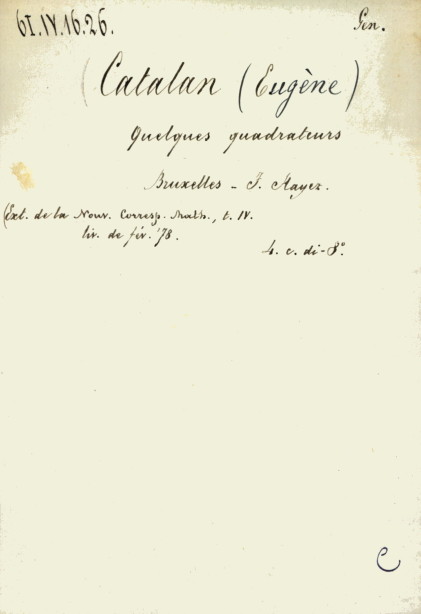 61.IV.16.26.
Gen.
(Catalan (Eugène)
Quelques quadrateurs
Bruxelles - F. Hayez.
(Ext. de la Nouv. Corresp. Math., t. IV.
liv. de fév. '78.
4. c. di-8°.
C